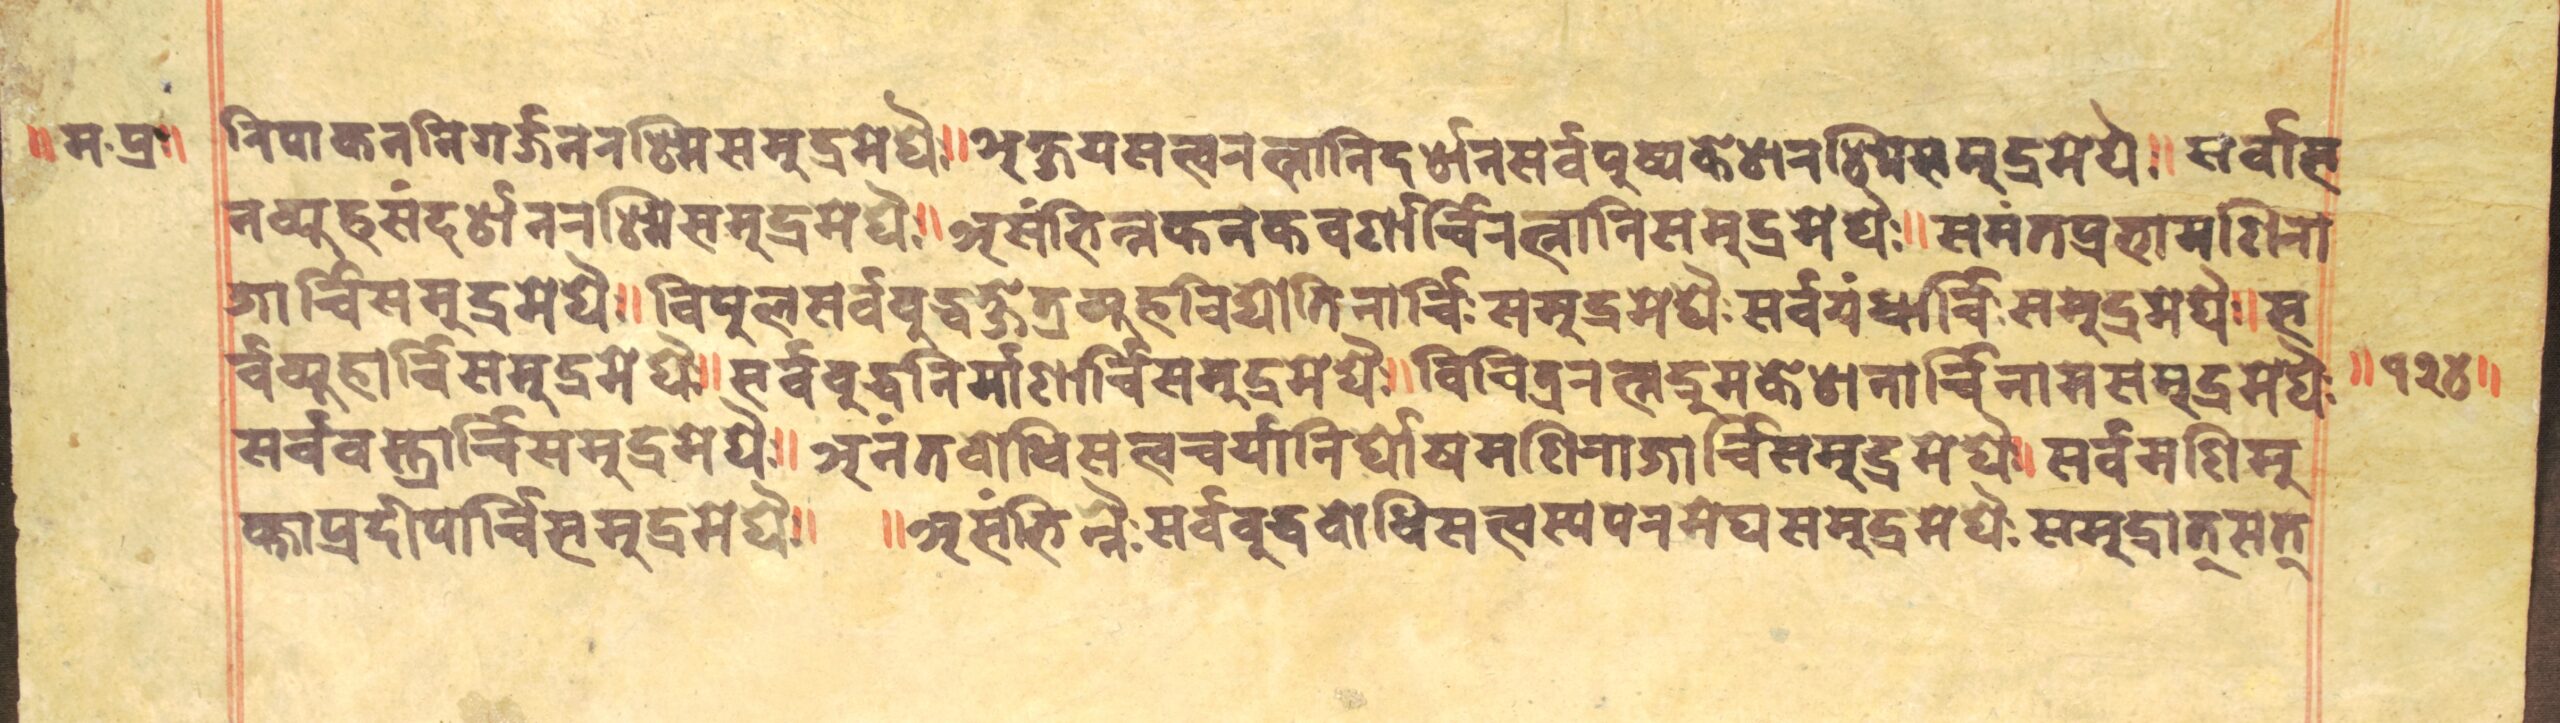 ॥ म. प्र॥ विपाकननिगर्ज्जनरश्मिसमुद्रमेघैः॥ अक्षयसत्त्वरत्नानिदर्शनसर्वपुष्पकेशरश्मिसमुद्रमेघैः॥ सर्वास
नव्यूहसंदर्शनरश्मिसमुद्रमेघैः॥ असंभिन्नकनकवर्णार्चिरत्नानिसमुद्रमेघैः॥ समंतप्रभामणिरा
जार्चिसमुद्रमेघैः॥ विपुलसर्वबुद्धक्षेत्रव्यूहविद्योतिनार्चिः समुद्रमेघैः सर्वगंधार्चिः समुद्रमेघैः॥ स
र्वव्यूहार्चिसमुद्रमेघैः॥ सर्वबुद्धनिर्माणार्चिसमुद्रमेघैः॥ विचित्ररत्नद्रुमकेशरार्चिनामसमुद्रमेघैः ॥१२४॥
सर्ववस्त्रार्चिसमुद्रमेघैः॥ अनंतबोधिसत्त्वचर्यानिर्घोषमणिराजार्चिसमुद्रमेघैः॥ सर्वमणिमु
क्ताप्रदीपार्चिसमुद्रमेघैः॥ ॥असंभिन्नैः सर्वबुद्धबोधिसत्त्वस्यपनमेघसमुद्रमेघैः समुद्रात् सत्